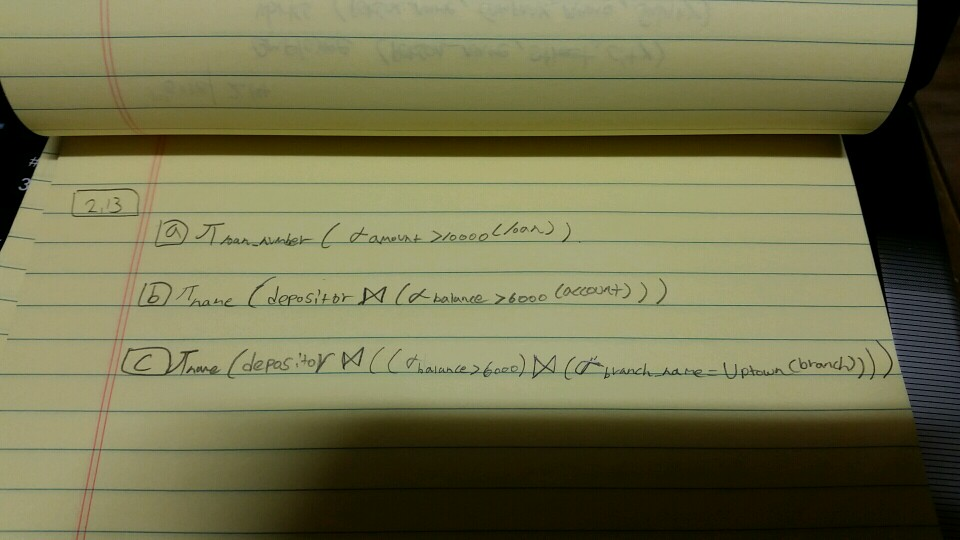 2.13
a π loan_number ( σ amount >10000 (loan) )
b π name ( depositor ⋈ ( σ balance >6000 (account) ) )
c π name ( depositor ⋈ ( ( σ balance >6000 ) ⋈ ( σ branch_name = Uptown (branch) ) ) )